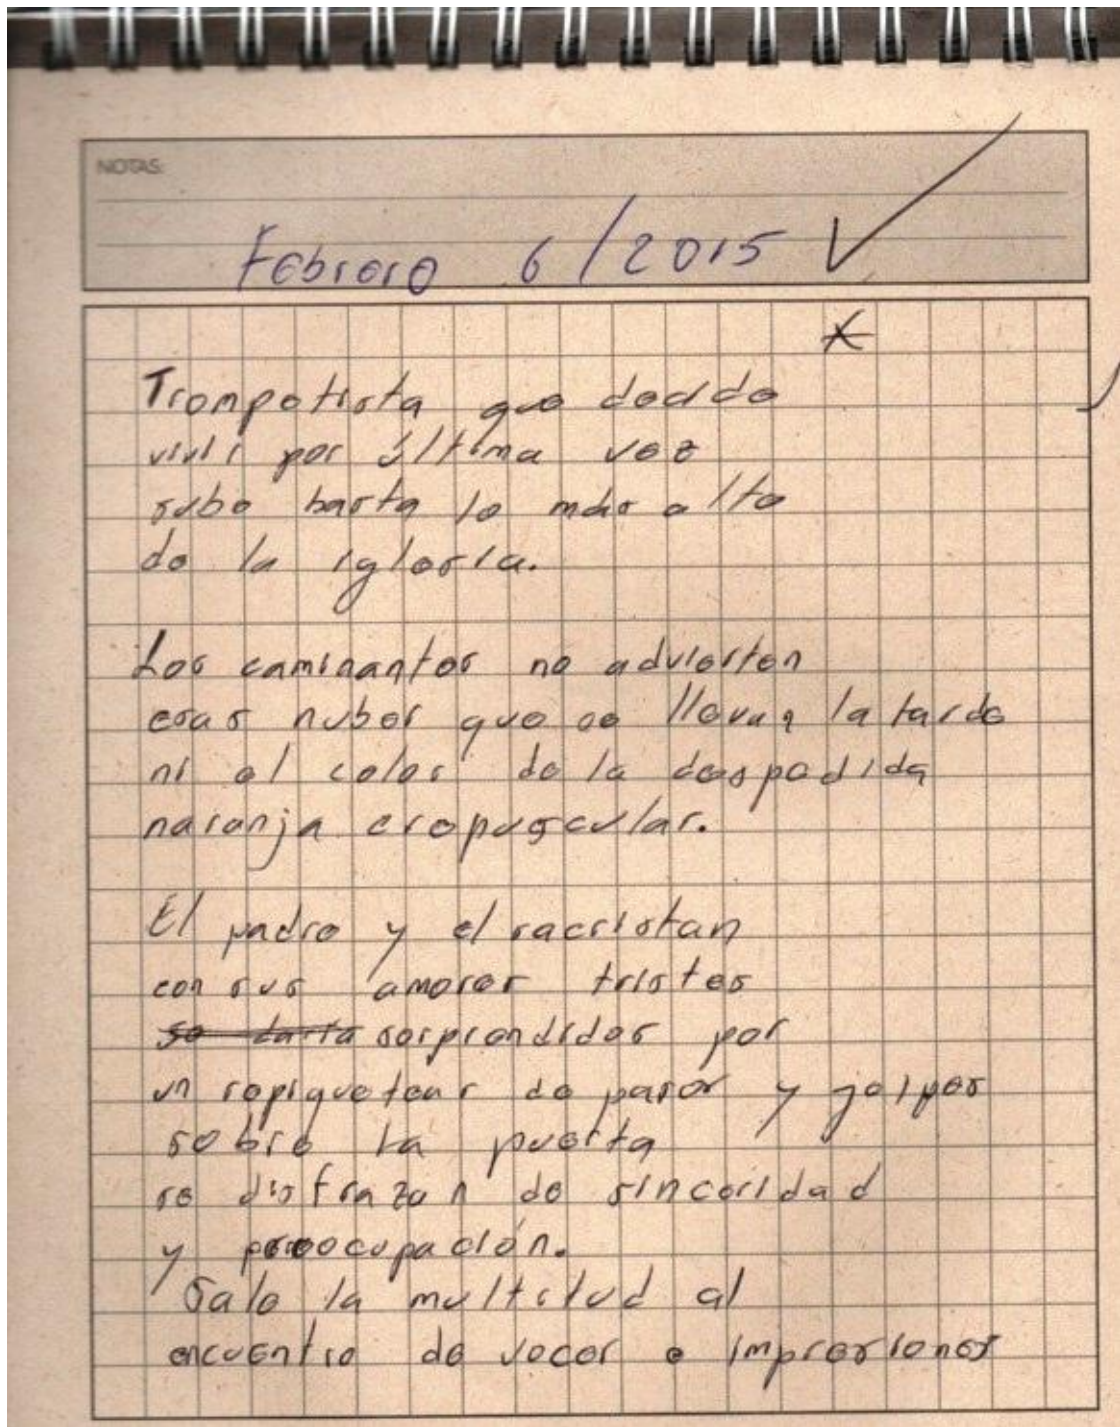 NOTAS:
Febrero 6/2015
Trompetista que decide
vivir por última vez
sube hasta lo más alto
de la iglesia.
Los caminantes no advierten
esas nubes que se llevan la tarde
ni el color de la despedida
naranja crepuscular.
El padre y el sacristan
con sus amores tristes
sorprendidos por
un repiquetear de pasos y golpes
sobre la puerta
se disfrazan de sinceridad
y preocupación.
Sale la multitud al
encuentro de voces e impresiones